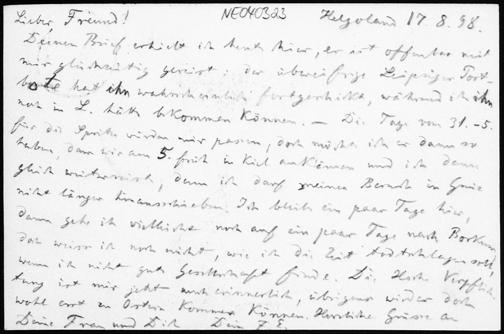 Lieber Freund! NE040323 Helgoland 17 8. 98.
Deinen Brief erhielt ich heute hier, er ist offenbar mit
mir gleichzeitig gereist: der übereifrige Leipziger Post-
bote hat ihn wahrscheinlich fortgeschickt, während ich ihn
noch in L. hätte bekommen können. — Die Tage vom 31.-5.
für die Spritze würden mir passen, doch möchte ich es dann so
haben, dass wir am 5. früh in Kiel ankommen und ich dann
gleich weiterreise, denn ich darf meinen Besuch in
nicht länger hinausschieben. Ich bleibe ein paar Tage hier,
dann gehe ich vielleicht noch auf ein paar Tage nach Borkum
doch weiss ich noch nicht, wie ich die Zeit todtschlagen soll
wenn ich nicht gute Gesellschaft finde. Die
tung ist mir jetzt auch erinnerlich, übrigens wird er doch
wohl erst zu Ostern kommen können. Herzliche Grüsse an
Deine Frau und Dich Dein F E.